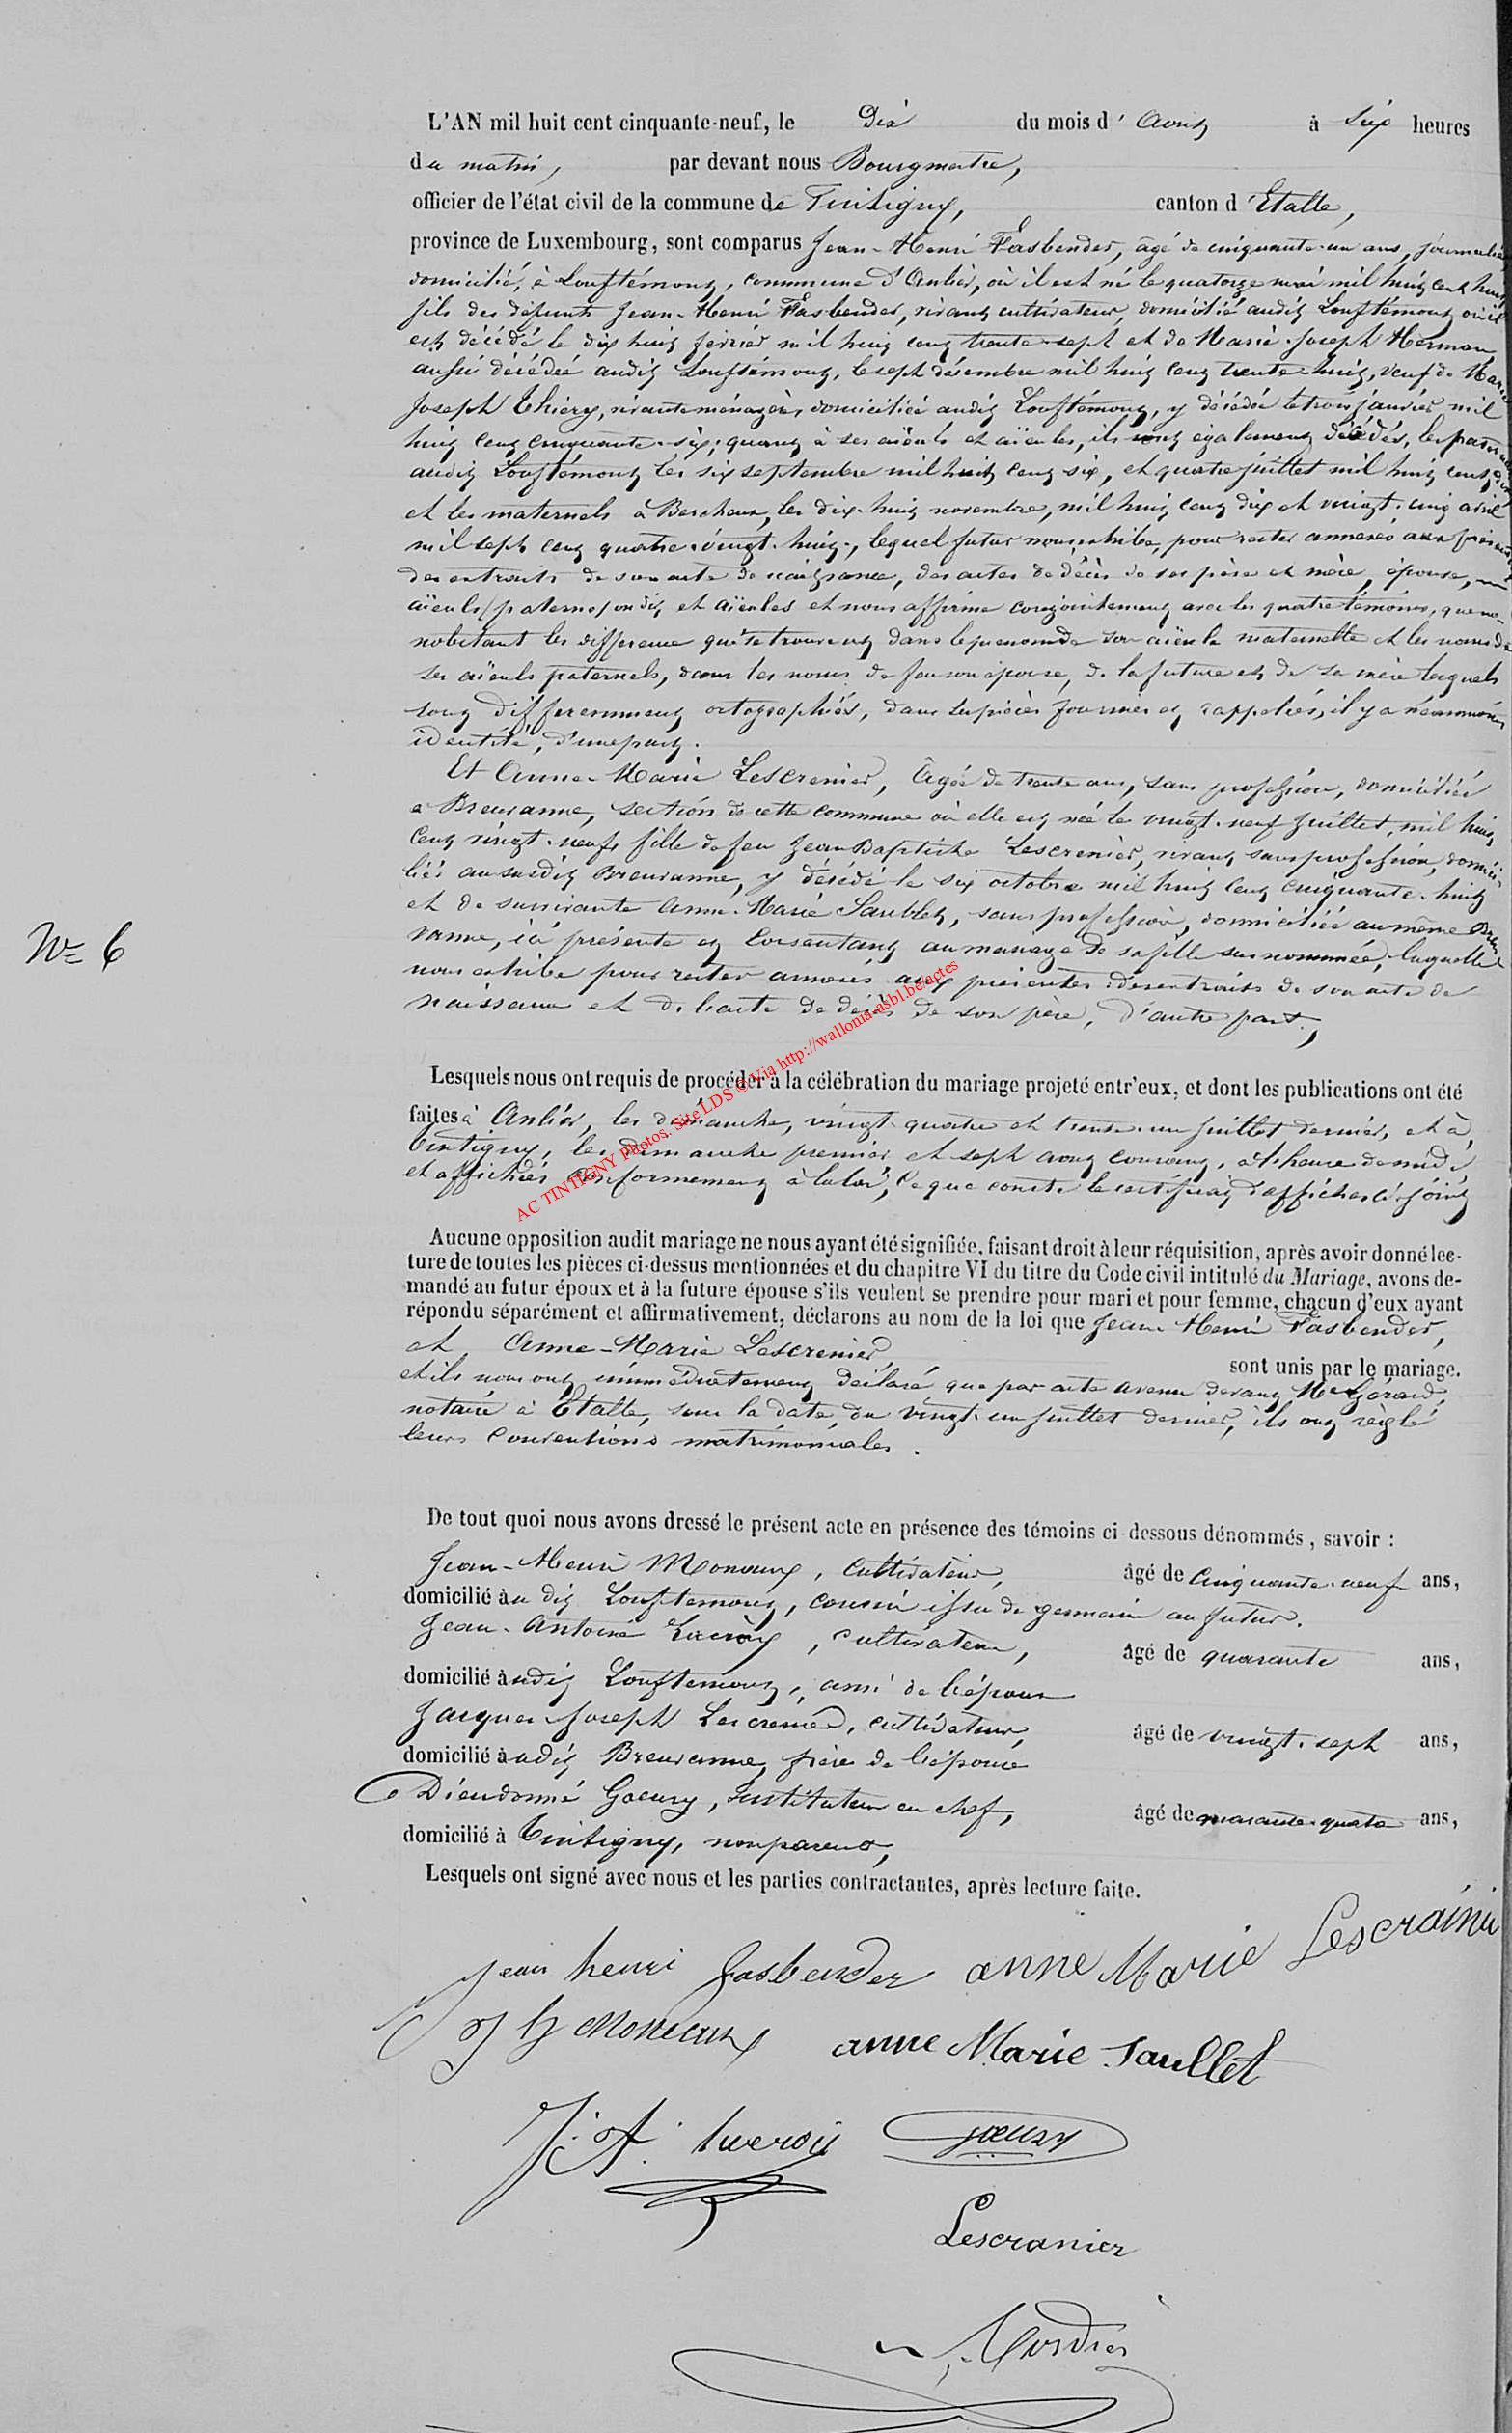 L'AN mil huit cent cinquante-neuf, le Dix du mois d' Août à Six heures
du matin, par devant nous Bourgmestre,
officier de l'état civil de la commune de Tintigny, canton d'Etalle,
province de Luxembourg, sont comparus Jean-Henri Fasbender, âgé de cinquante-un ans, journalier
domicilié, à Louftémont, commune d'Anlier, où il est né le quatorze mai mil huit cent huit
fils des défunts Jean-Henri Fasbender, vivant cultivateur, domicilié audit Louftémont où il
est décédé le dix huit février mil huit cent trente-sept et de Marie-Joseph Herman,
aussi décédée audit Louftémont, le sept décembre mil huit cent trente-huit, veuf de Marie
Joseph Thiery, vivante ménagère, domiciliée audit Louftémont, y décédée le trois janvier mil
huit cent cinquante-six; quant à ses aïeuls et aïeules, ils sont également décédés, les paternels
audit Louftémont les six septembre mil huit cent six, et quatre juillet mil huit cent
et les maternels à Bercheux, les dix-huit novembre, mil huit cent dix et vingt-cinq avril
mil sept cent quatre-vingt-huit, lequel futur nous exhibe, pour rester annexés aux présentes
des extraits de son acte de naissance, des actes de décès de ses père et mère, épouse,
aïeuls paternels et aïeules et nous affirme conjointement avec les quatre témoins, que
nobstant les différence qui se trouvent dans le prenom de son aïeule maternelle et les noms de
ses aïeuls paternels, dans les noms de feu son épouse, de la future et de sa mère lesquels
sont differemment ortographiés, dans les pièces fournies et rappelées, il y a néanmoins
identité, d'une part.
Et Anne-Marie Lescrenier, âgée de trente ans, sans profession, domiciliée
à Breuvanne, section de cette commune où elle est née le vingt-neuf juillet, mil huit
cent vingt-neuf, fille de feu Jean Baptiste Lescrenier, vivant sans profession, domici-
lié au susdit Breuvanne, y décédé le six octobre mil huit cent cinquante-huit
et de survivante Anne-Marie Saublet, sans profession, domiciliée au même Breu
vanne, ici présente et consentant au mariage de sa fille susnommée, laquelle
nous exhibe pour rester annexés aux présentes des extraits de son acte de
naissance et de l'acte de décès de son père, d'autre part,
N° 6
Lesquels nous ont requis de procéder à la célébration du mariage projeté entr'eux, et dont les publications ont été
faites à Anlier, les dimanche, vingt-quatre et trente-un juillet dernier, et à
Tintigny, les dimanche premier et sept août courant, à l'heure de midi
et affichées conformement à la loi, ce que constate le certificat d'affiches ci-joint
AC TINTIGNY Photos. Site LDS © Via http://wallonia-asbl.be/actes
Aucune opposition audit mariage ne nous ayant été signifiée, faisant droit à leur réquisition, après avoir donné lec-
ture de toutes les pièces ci-dessus mentionnées et du chapitre VI du titre du Code civil intitulé du Mariage, avons de-
mandé au futur époux et à la future épouse s'ils veulent se prendre pour mari et pour femme, chacun d'eux ayant
répondu séparément et affirmativement, déclarons au nom de la loi que Jean-Henri Fasbender,
et Anne-Marie Lescrenier, sont unis par le mariage.
et ils nous ont immédiatement déclaré que par acte avenu devant Me Gérard,
notaire à Etalle, sous la date du vingt-un juillet dernier, ils ont réglé
leurs conventions matrimoniales.
De tout quoi nous avons dressé le présent acte en présence des témoins ci-dessous dénommés, savoir :
Jean-Henri Monaux, cultivateur, âgé de cinquante-neuf ans,
domicilié audit Louftemont, cousin issu de germain au futur.
Jean-Antoine Lucroy, cultivateur, âgé de quarante ans,
domicilié à udit Louftemont, ami de l'époux
Jacques-Joseph Lescrenier, cultivateur, âgé de vingt-sept ans,
domicilié à udit Breuvanne, frère de l'épouse
Dieudonné Goeury, Instituteur en chef, âgé de quarante-quatre ans,
domicilié à Tintigny, non parent,
Lesquels ont signé avec nous et les parties contractantes, après lecture faite.
jean henri fasbender anne Marie Lescrainie
J h Moneaux anne Marie Saullet
J. A. lucroy goeury
Lescranier